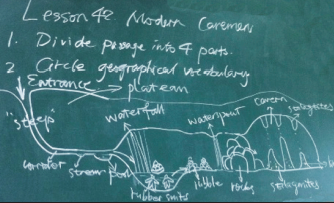 Lesson 42 Modern Cavemen
1. Divide passage into 4 parts.
2 Circle geographical vocabulary
Entrance
plateau
waterfall
waterspout
cavern
stalagtites
"steep"
corridor
stream
pool
rubble
rocks
stalagmites
rubber suits